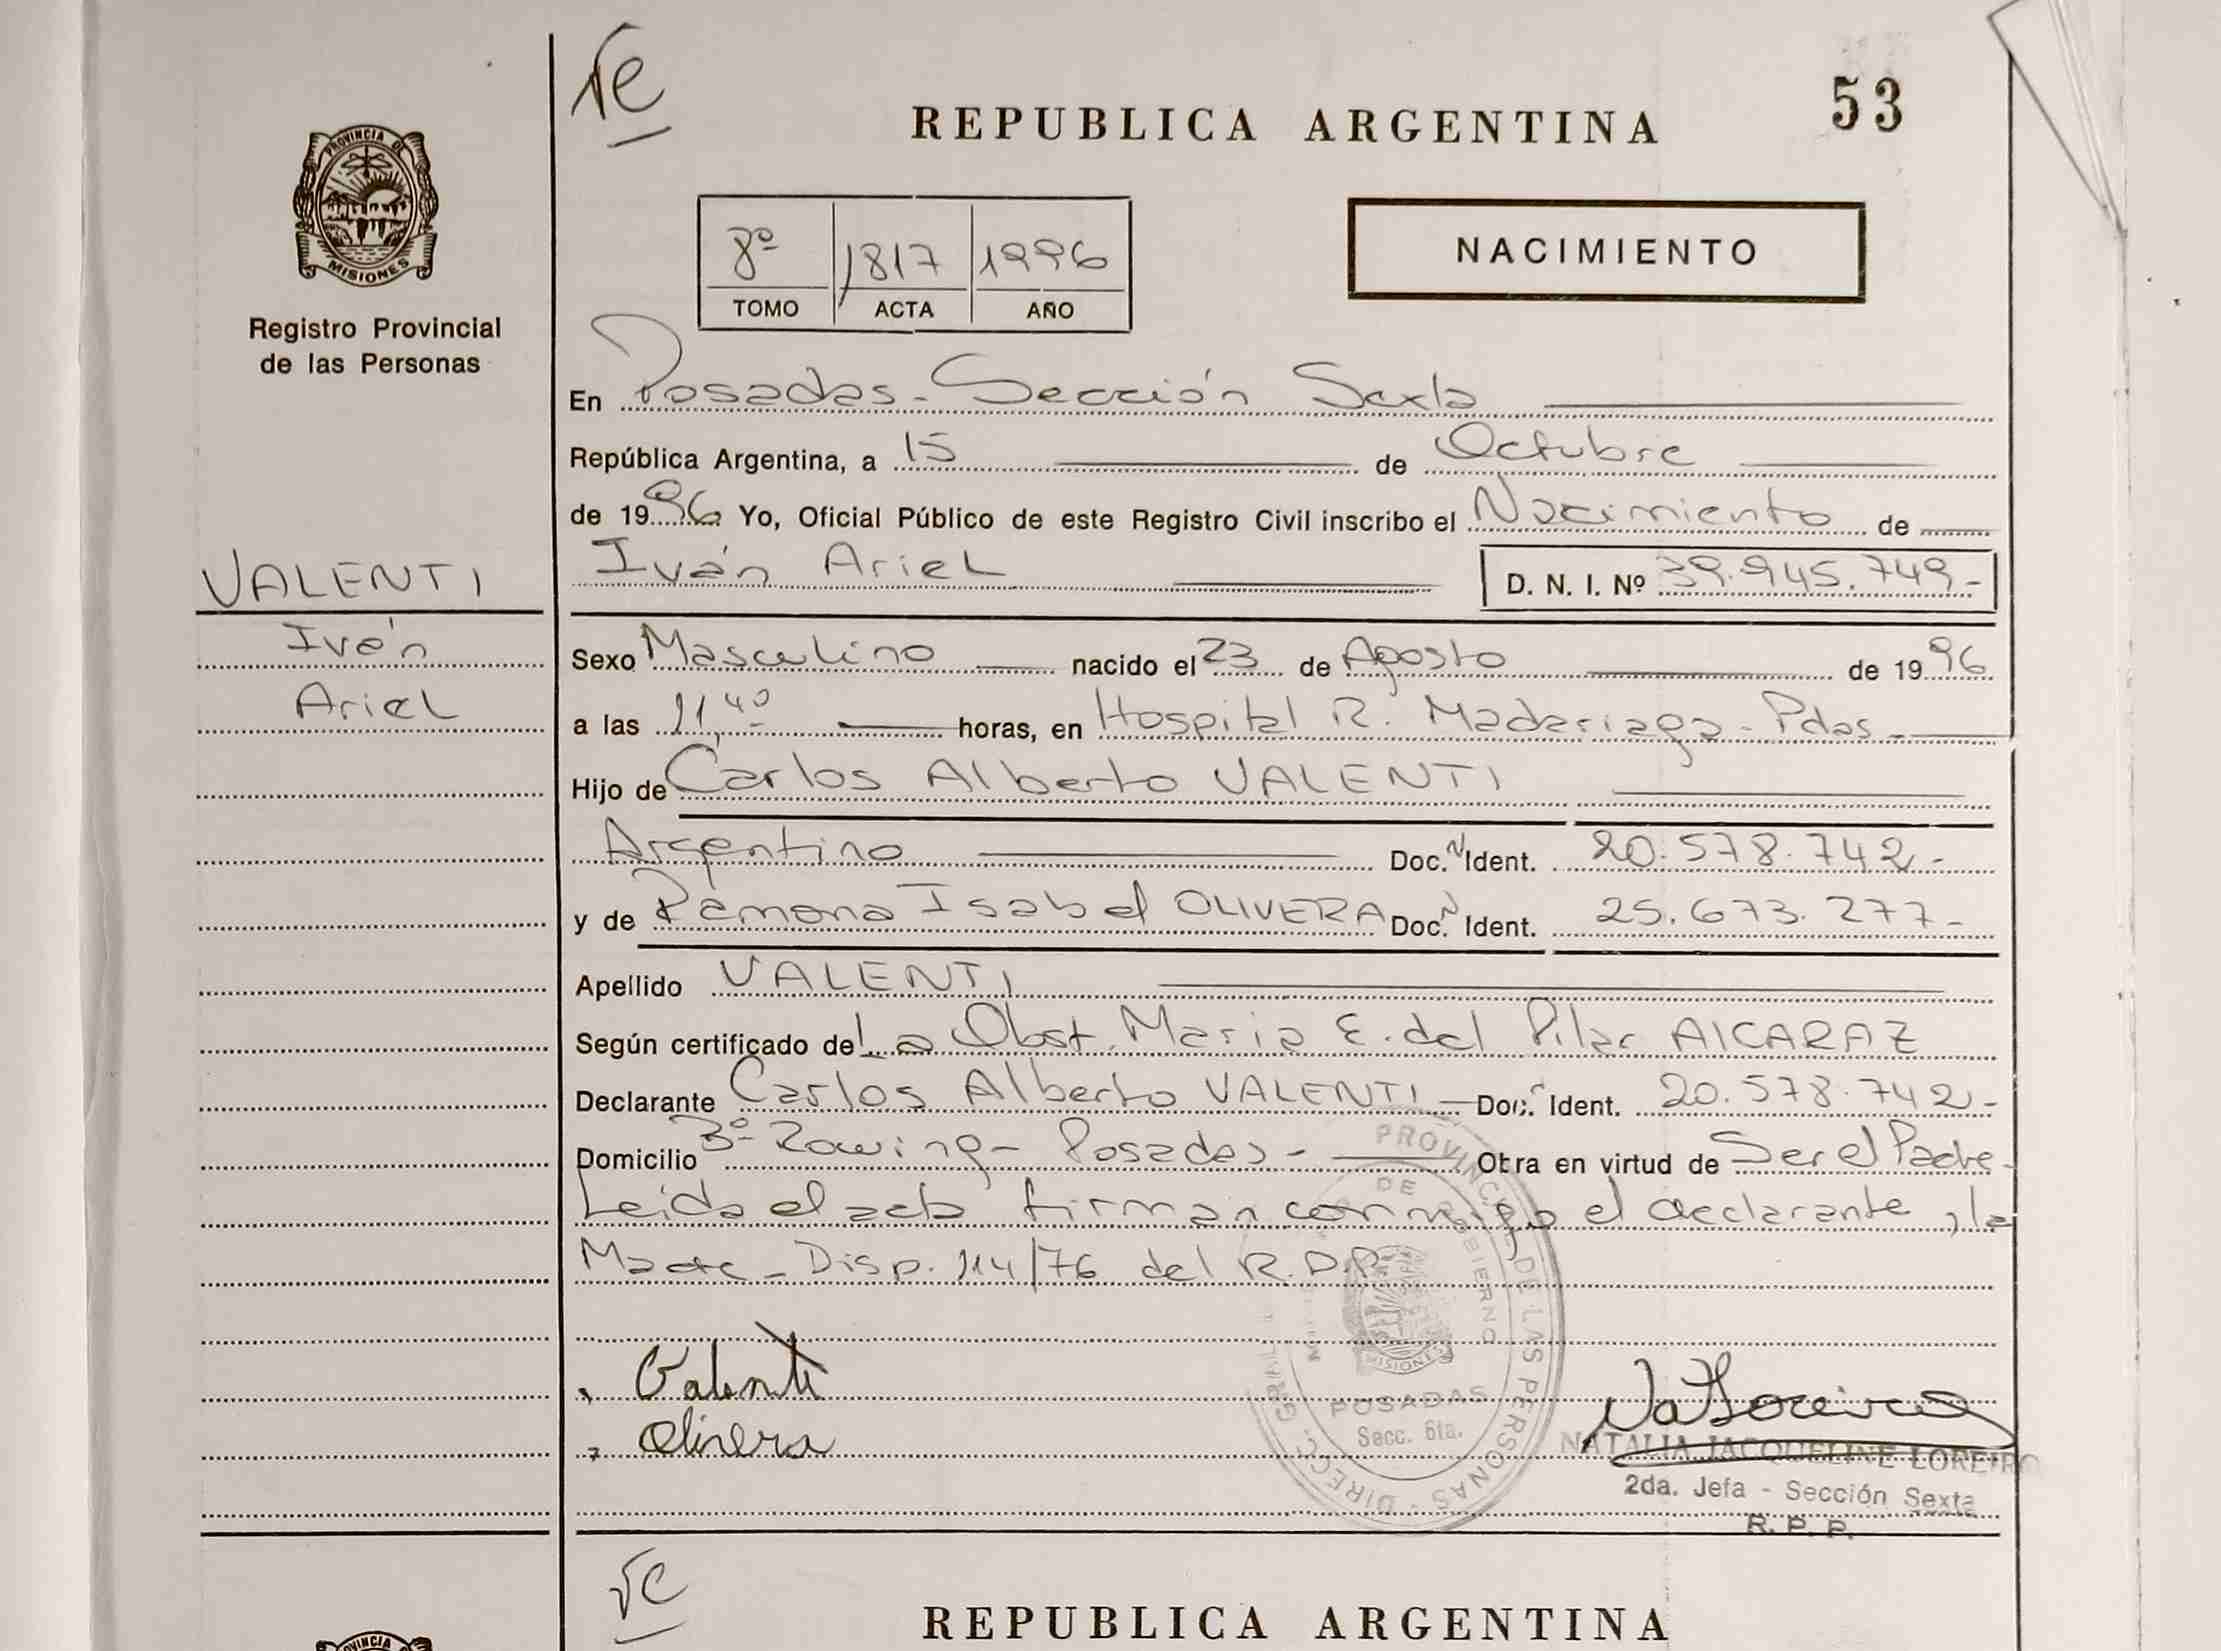 REPUBLICA ARGENTINA
53
PROVINCIA DE
MISIONES
Registro Provincial
de las Personas
8º 1817 1996
TOMO ACTA AÑO
NACIMIENTO
En Posadas - Sección Sexta
República Argentina, a 15 de Octubre
de 1996 Yo, Oficial Público de este Registro Civil inscribo el Nacimiento de
Iván Ariel D. N. I. Nº 39.945.749.-
VALENTI
Iván
Ariel
Sexo Masculino nacido el 23 de Agosto de 1996
a las 11,40 horas, en Hospital R. Madariaga - Pdas -
Hijo de Carlos Alberto VALENTI
Argentino Doc. N Ident. 20.578.742.-
y de Ramona Isabel OLIVERA Doc. N Ident. 25.673.277-
Apellido VALENTI
Según certificado de la Obst. Maria E. del Pilar AlCARAZ
Declarante Carlos Alberto VALENTI - Doc. Ident. 20.578.742.-
Domicilio Bº Rowing - Posadas - Obra en virtud de Ser el Padre -
Leida el acta firman conmigo el declarante, la
Madre - Disp. 114/76 del R.D.P.
Valenti
Olivera
PROVINCIAL DE LAS PERSONAS - DIRECC. GRAL.
DE GOBIERNO
MISIONES
POSADAS
Secc. 6ta.
NATALIA JACQUELINE LOREIRO
2da. Jefa - Sección Sexta
R. P. P.
REPUBLICA ARGENTINA
PROVINCIA